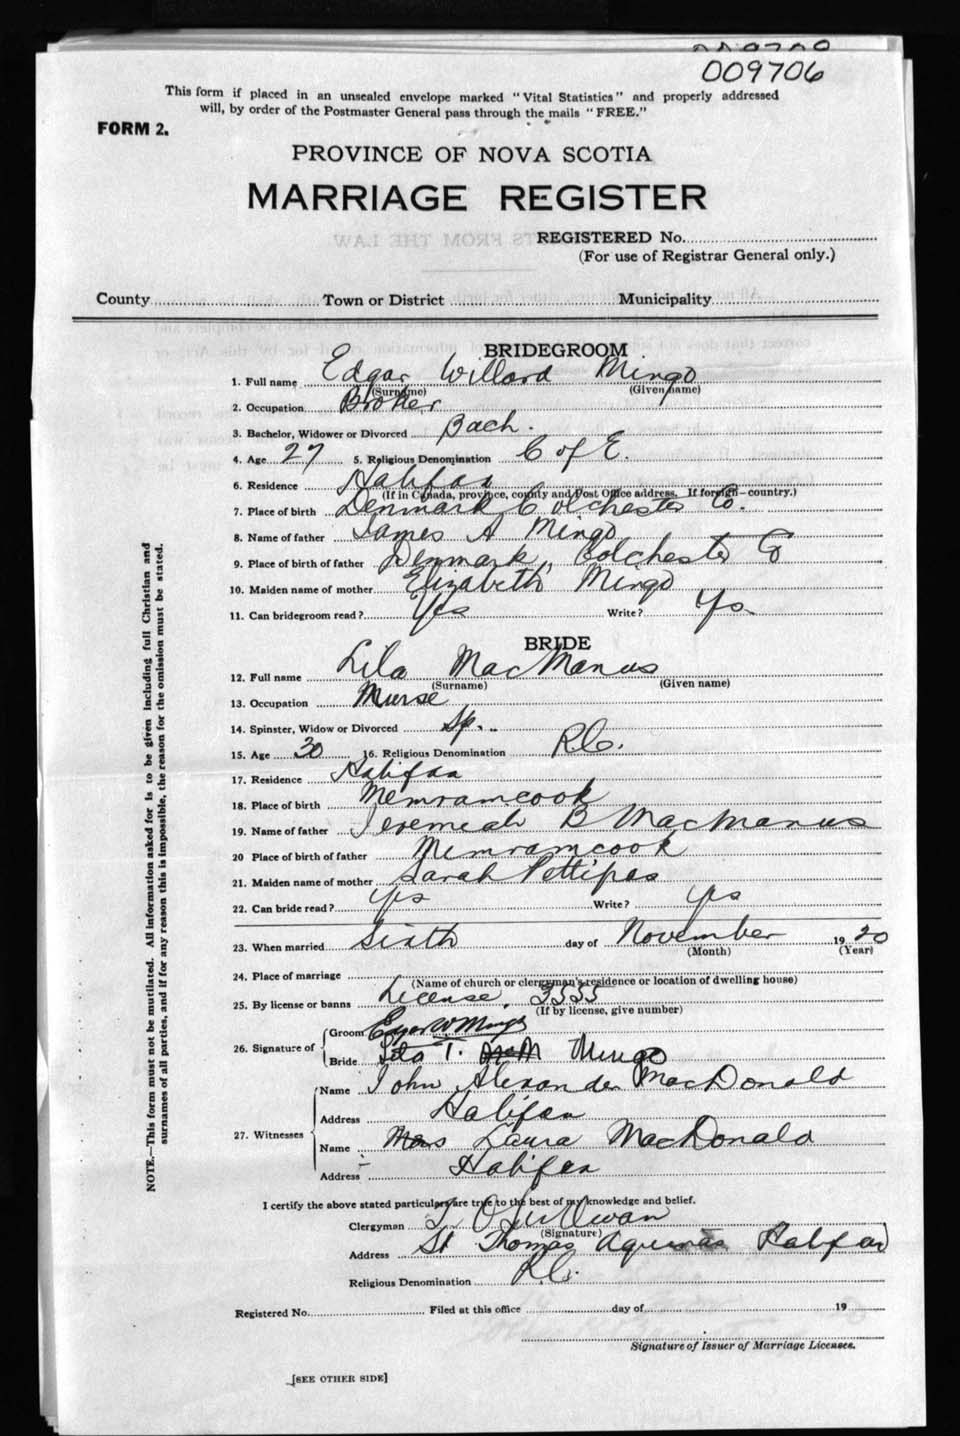 009706
This form if placed in an unsealed envelope marked "Vital Statistics" and properly addressed
will, by order of the Postmaster General pass through the mails "FREE."
FORM 2.
PROVINCE OF NOVA SCOTIA
MARRIAGE REGISTER
REGISTERED No.
(For use of Registrar General only.)
County Town or District Municipality
BRIDEGROOM
1. Full name Edgar Willard Mingo
(Surname) (Given name)
2. Occupation Broker
3. Bachelor, Widower or Divorced Bach.
4. Age 27 5. Religious Denomination C of E.
6. Residence Halifax
(If in Canada, province, county and Post Office address. If foreign—country.)
7. Place of birth Denmark Colchester Co.
8. Name of father James A Mingo
9. Place of birth of father Denmark, Colchester Co
10. Maiden name of mother Elizabeth Mingo
11. Can bridegroom read? Yes Write? Yes
BRIDE
12. Full name Lila MacManus
(Surname) (Given name)
13. Occupation Nurse
14. Spinster, Widow or Divorced Sp.
15. Age 30 16. Religious Denomination R.C.
17. Residence Halifax
18. Place of birth Memramcook
19. Name of father Jeremiah B MacManus
20 Place of birth of father Memramcook
21. Maiden name of mother Sarah Pettipas
22. Can bride read? yes Write? yes
23. When married Sixth day of November 1920
(Month) (Year)
24. Place of marriage
(Name of church or clergyman's residence or location of dwelling house)
25. By license or banns License, 3555
(If by license, give number)
26. Signature of Groom Edgar W Mingo
Bride T. Mingo
27. Witnesses Name John Alexander MacDonald
Address Halifax
Name Laura MacDonald
Address Halifax
I certify the above stated particulars are true to the best of my knowledge and belief.
Clergyman O'Sullivan
(Signature)
Address St Thomas Aquinas Halifax
Religious Denomination R.C.
Registered No. Filed at this office day of 19
Signature of Issuer of Marriage Licenses.
[SEE OTHER SIDE]
NOTE.—This form must not be mutilated. All information asked for is to be given including full Christian and
surnames of all parties, and if for any reason this is impossible, the reason for the omission must be stated.